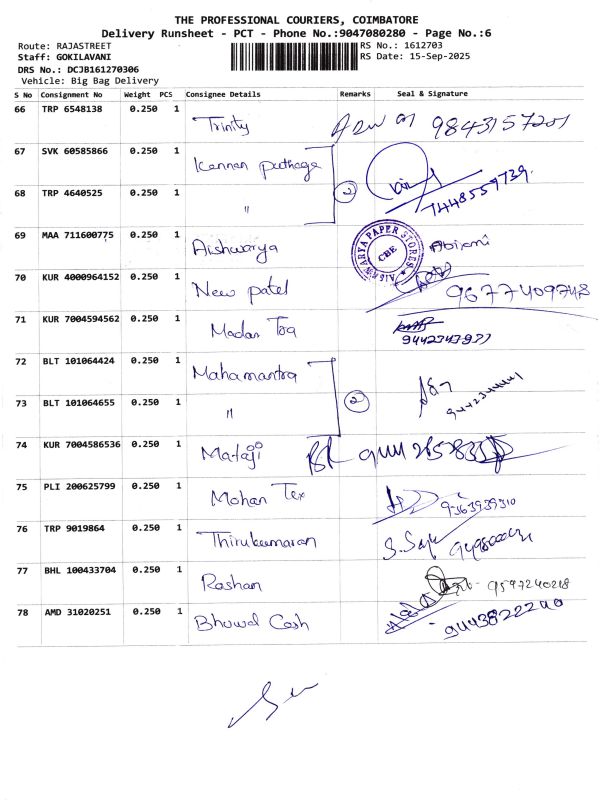 THE PROFESSIONAL COURIERS, COIMBATORE
Delivery Runsheet - PCT - Phone No.:9047080280 - Page No.:6
Route: RAJASTREET RS No.: 1612703
Staff: GOKILAVANI RS Date: 15-Sep-2025
DRS No.: DCJB161270306
Vehicle: Big Bag Delivery
S No Consignment No Weight PCS Consignee Details Remarks Seal & Signature
66 TRP 6548138 0.250 1 Trinity 9843157201
67 SVK 60585866 0.250 1 Kannan puthaga
68 TRP 4640525 0.250 1 " 2 7448559739
69 MAA 711600775 0.250 1 Aishwarya AISHWARYA PAPER STORES CBE Abirami
70 KUR 4000964152 0.250 1 New patel 9677409748
71 KUR 7004594562 0.250 1 Madan Tra 9442343977
72 BLT 101064424 0.250 1 Mahamantra
73 BLT 101064655 0.250 1 " 2
74 KUR 7004586536 0.250 1 Mataji
75 PLI 200625799 0.250 1 Mohan Tex 9363939310
76 TRP 9019864 0.250 1 Thirukumaran
77 BHL 100433704 0.250 1 Rashan 9597240218
78 AMD 31020251 0.250 1 Bhuwal Cash 9443822240